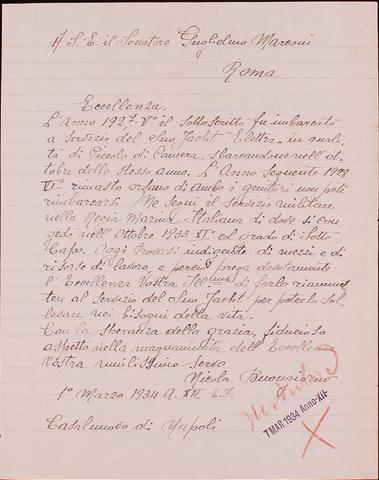 A S. E. il Senatore Guglielmo Marconi
Roma
Eccellenza.
L'Anno 1927-Vº il sottoscritto fu imbarcato
a servizio del Suo Jacht "Elettra" in quali
tà di Piccolo di Camera, sbarcandone nell'ot
tobre dello stesso anno. L'Anno seguente 1928
VIº rimasto orfano di ambo i genitori non potè
rimbarcarsi. Ne seguì il servizio militare
nella Regia Marina Italiana di dove si con
gedò nell'Ottobre 1933-XIº col grado di Sotto
Capo. Oggi trovasi indigente di mezzi e di
risorse di lavoro, e perciò prega devotamente
l'Eccellenza Vostra Ill.ma di farlo riammet
tere al servizio del Suo Jacht per poterlo sol
levare nei bisogni della vita.
Con la speranza della grazia, fiducioso
aspetto nella magnanimità dell'Eccellenza
Vostra umilissimo servo
Nicola Buongiorno
1º Marzo 1934 A. XII E.F.
7 MAR 1934 Anno-XII
Casalnuovo di Napoli